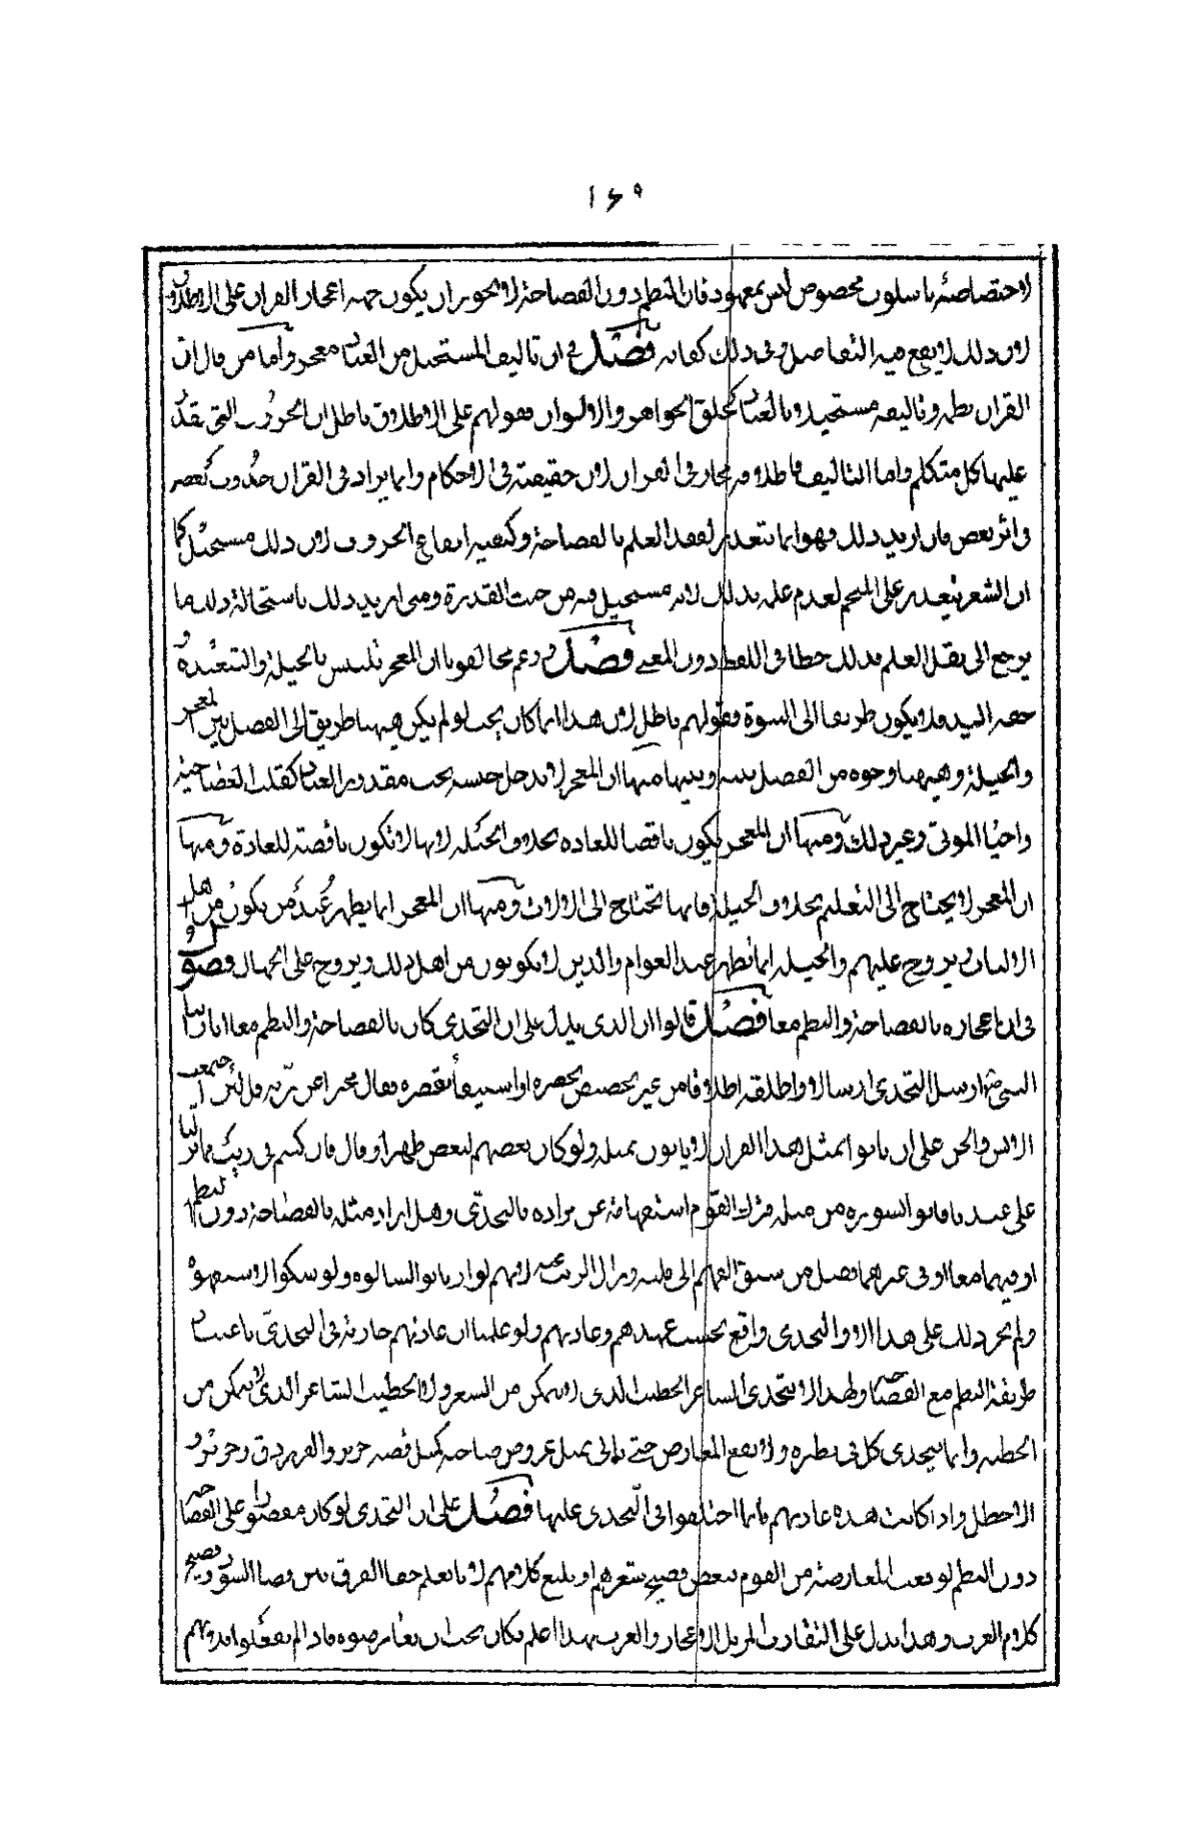 ١٦٩
لاختصاصه باسلوب مخصوص ليس بمعهود فان النظم دون الفصاحة لا يجوز ان يكون جهة اعجاز القران على الاطلاق
لان ذلك لا يقع فيه التفاضل وفي ذلك كفاية فصل في ان تاليف المستحيل من العباد معجز واما من قال ان
القران نظمه وتاليفه مستحيل من العباد كخلق الجواهر والالوان فقولهم على الاطلاق باطل لان الحروف التي يقدر
عليها كل متكلم واما التاليف فاطلاقه مجاز في القران لان حقيقته في الاحكام وانما يراد في القران حدوث بعضه
في اثر بعض فان اريد ذلك فهو انما يتعذر لفقد العلم بالفصاحة وكيفية ايقاع الحروف لان ذلك مستحيل كما
ان الشعر يتعذر على المفحم لعدم علمه بذلك لانه مستحيل منه من حيث القدرة ومتى اريد ذلك باستحالة ذلك ما
يرجع الى فقد العلم فذلك خطا في اللفظ دون المعنى فصل وزعم مخالفونا ان المعجز تلتبس بالحيلة والشعبذة و
خفة اليد فلا يكون طريقا الى النبوة فقولهم باطل لان هذا انما كان يجب لو لم يكن هيهنا طريق الى الفصل بين المعجز
والحيلة وهيهنا وجوه من الفصل بينه وبينها منها ان المعجز لا يدخل جنسه تحت مقدور العباد كقلب العصا حية
واحيا الموتى وغير ذلك ومنها ان المعجز يكون ناقضا للعادة بخلاف الحيلة لانها لا تكون ناقضة للعادة ومنها
ان المعجز لا يحتاج الى التعلم بخلاف الحيلة فانها تحتاج الى الالات ومنها ان المعجز انما يظهر عند من يكون من اهل
الالباب ويروج عليهم والحيلة انما تظهر عند العوام والذين لا يكونون من اهل ذلك ويروج على الجهال فصل
في ان اعجازه بالفصاحة والنظم معا فصل قالوا ان الذي يدل على ان التحدي كان بالفصاحة والنظم معا انا راينا
النبي ارسل التحدي ارسالا واطلقه اطلاقا من غير تخصيص يحصره او استيفاء يقصره فقال مخبرا عن ربه قل لئن اجتمعت
الانس والجن على ان ياتوا بمثل هذا القران لا ياتون بمثله ولو كان بعضهم لبعض ظهيرا وقال فان كنتم في ريب مما نزلنا
على عبدنا فاتوا بسورة من مثله فترك القوم استفهامه عن مراده بالتحدي وهل اراد مثله بالفصاحة دون النظم
او فيهما معا او في غيرهما فعل من سبق الفهم الى قلبه وزال الريب عنه لانهم لو ارتابوا لسالوه ولو شكوا لاستفهموه
ولم يجر ذلك على هذا الا والتحدي واقع بحسب عهدهم وعادتهم ولو علمنا ان عادتهم جارية في التحدي باعتبار
طريقة النظم مع الفصاحة ولهذا لا يتحدى الشاعر الخطيب الذي لا يتمكن من الشعر ولا الخطيب الشاعر الذي لا يتمكن من
الخطبة وانما يتحدى كل في نظيره ولا يقع المعارض حتى ياتي بمثل عروض صاحبه كمثل قصة جرير والفرزدق وجرير و
الاخطل واذا كانت هذه عادتهم فانما اختلفوا في التحدي عليها فصل على ان التحدي لو كان مقصورا على الفصاحة
دون النظم لوقعت المعارضة من القوم ببعض فصيح شعرهم او بليغ كلامهم لانا نعلم خفا الفرق بين قصار السور وفصيح
كلام العرب وهذا يدل على التقارب المزيل للاعجاز والعرب بهذا اعلم فكان يجب ان يعارضوه فاذا لم يفعلوا فلانهم